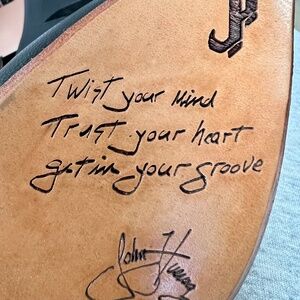 Twist your mind
Trust your heart
get in your groove
John